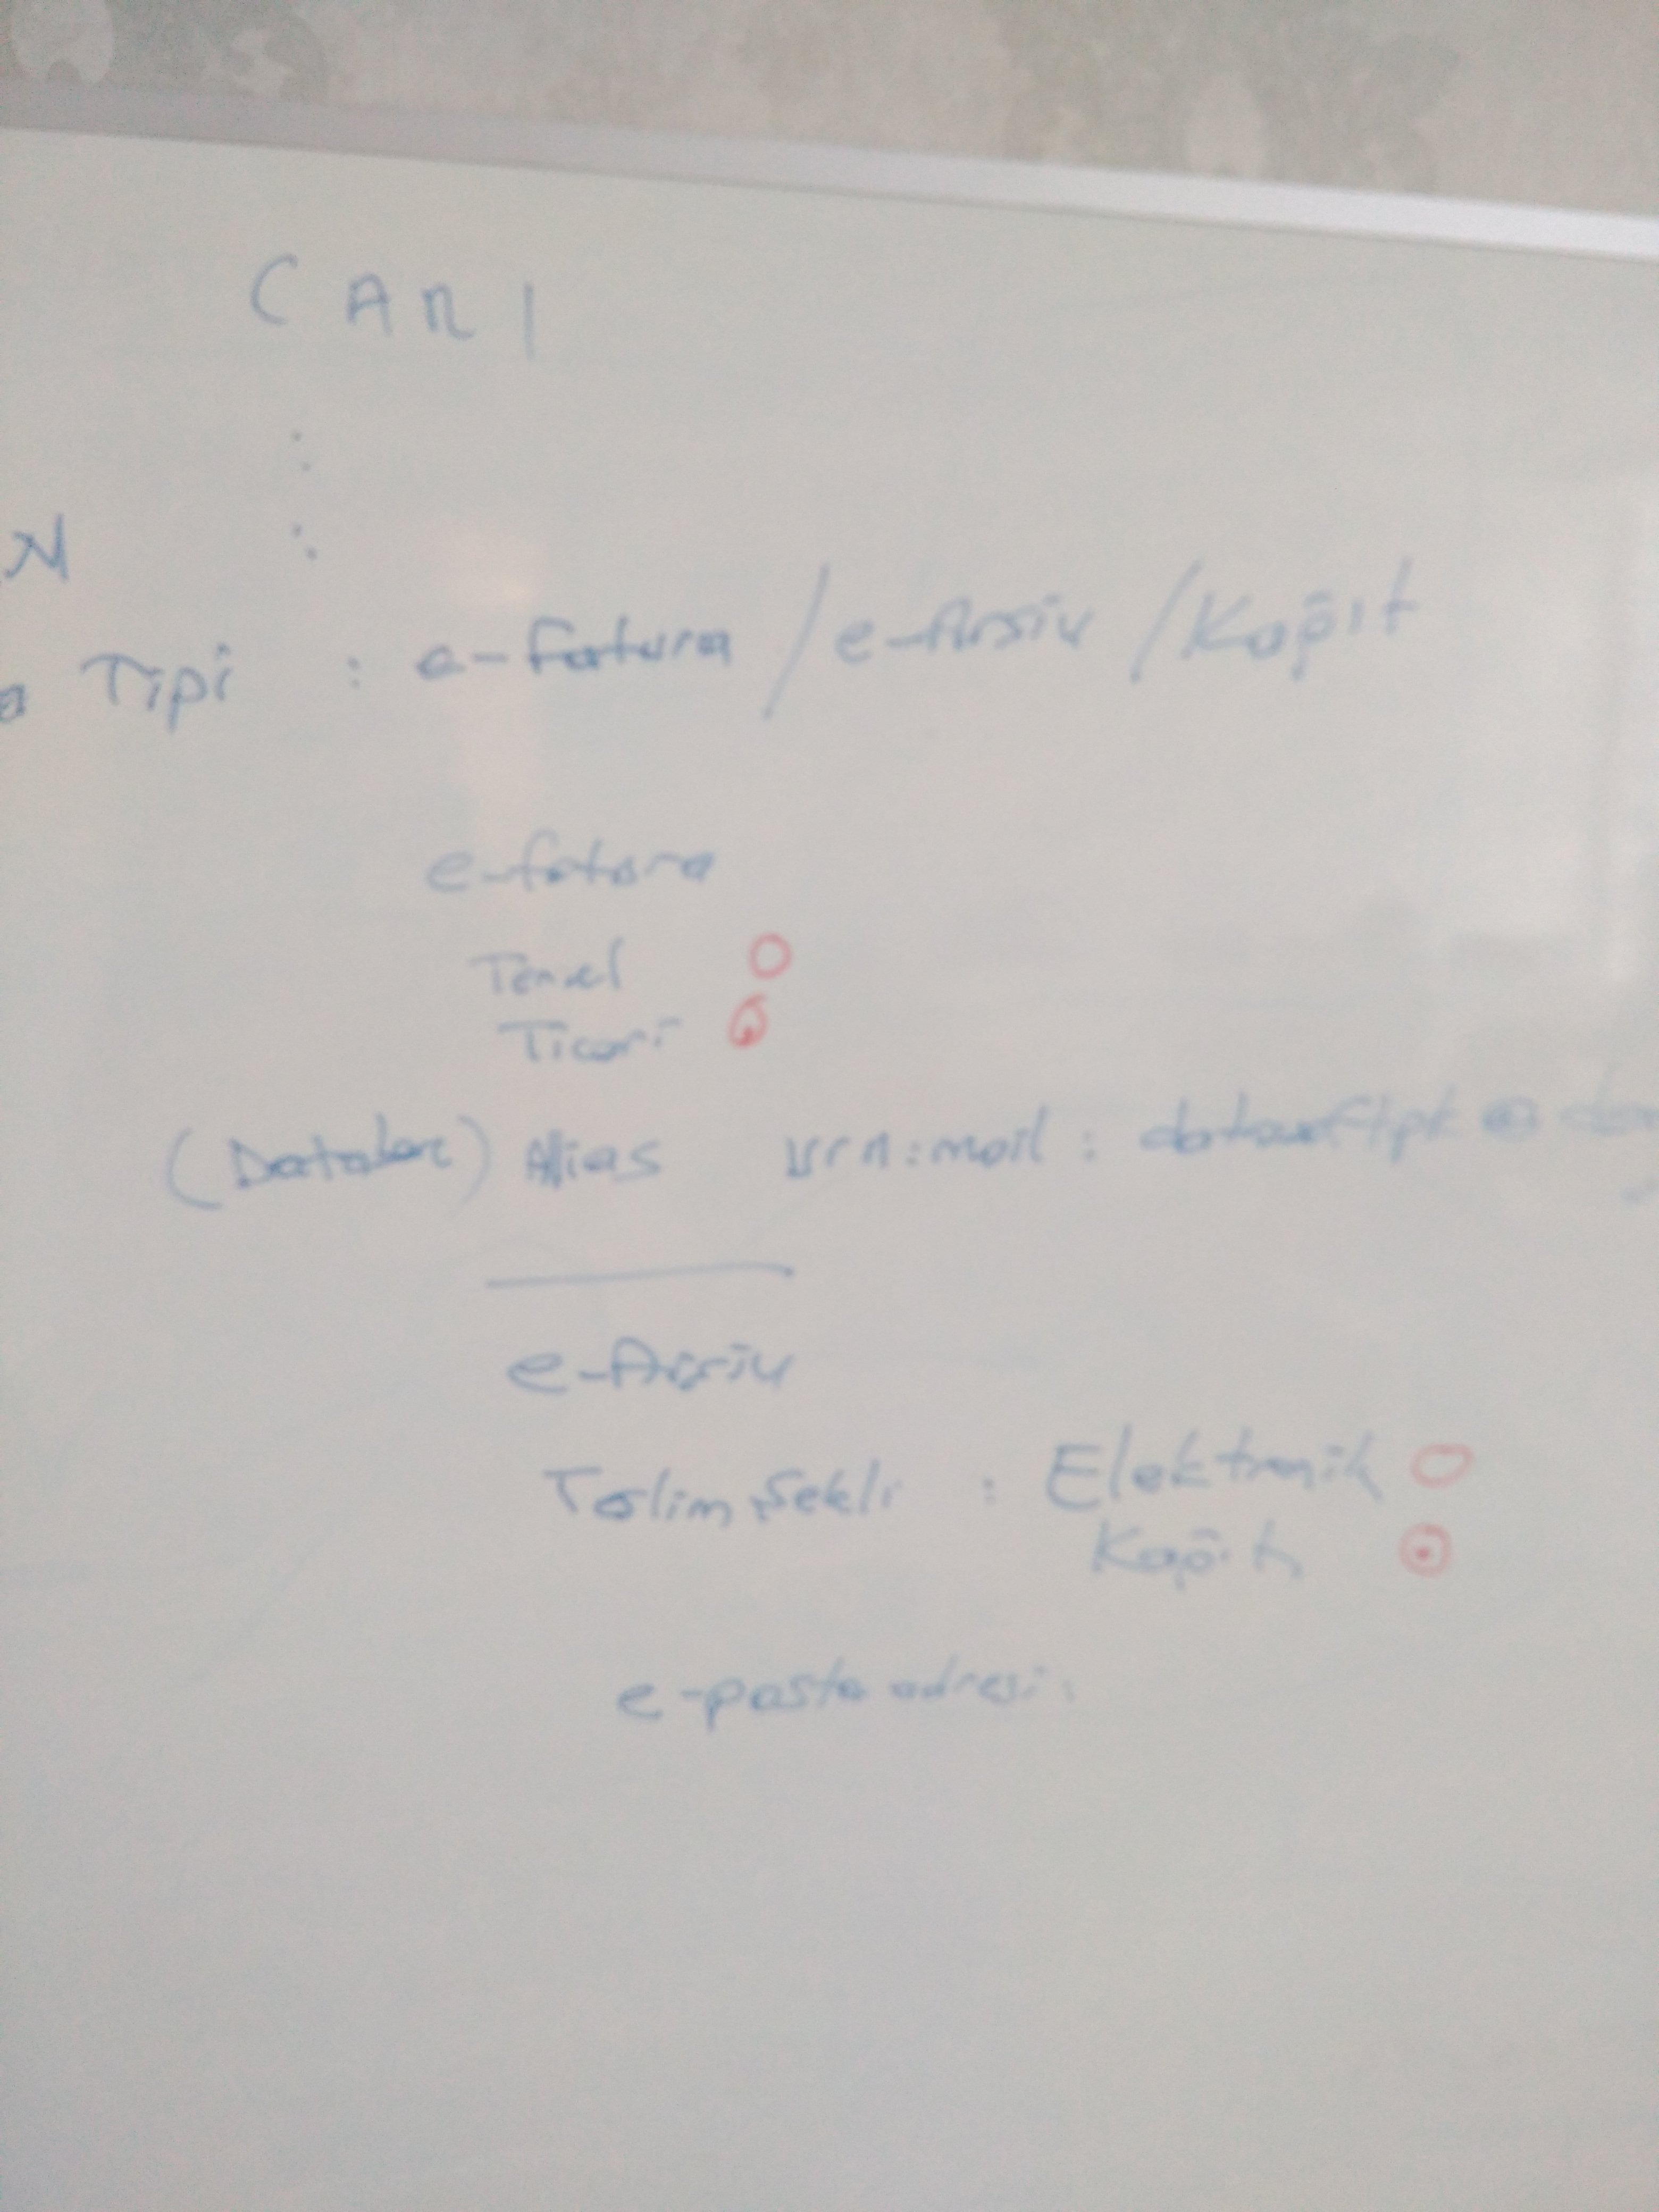 CARI
:
:
N
a Tipi : e-fatura / e-Arşiv / Kağıt
e-fatura
Temel
Ticari
( ) Alias urn:mail :
e-Arşiv
Teslim Şekli : Elektronik
Kağıt
e-posta adresi :